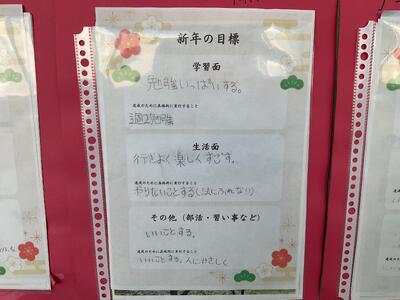 新年の目標
学習面
勉強いっぱいする。
達成のために具体的に実行すること
生活面
行ぎよく楽しくすごす。
達成のために具体的に実行すること
やりたいことする(法にふれない)
その他(部活・習い事など)
いいことする。
達成のために具体的に実行すること
いいことする。人にやさしく